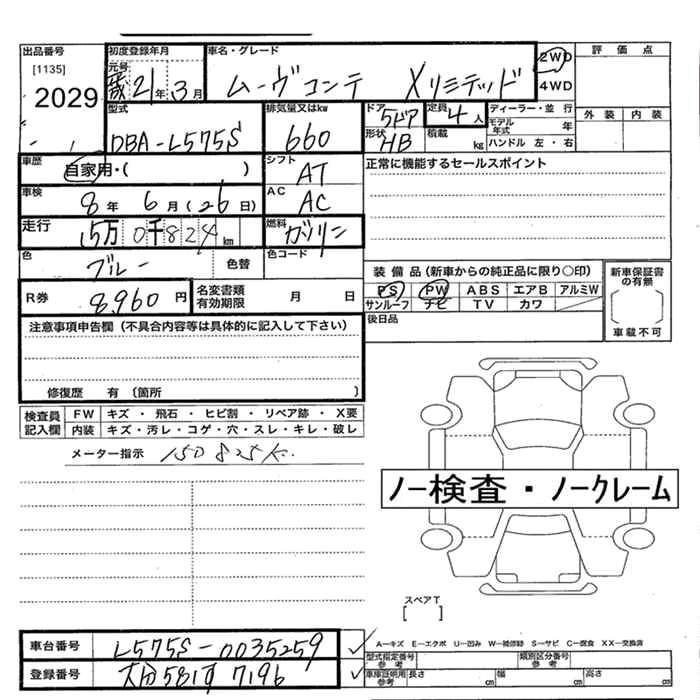 出品番号
[1135]
2029
初度登録年月
元号
平成 21年 3月
車名・グレード
ムーヴコンテ Xリミテッド
2WD
4WD
評価点
外装 内装
型式
DBA-L575S
排気量又はkw
660
ドア
5ドア
形状
HB
定員
4人
積載
kg
ディーラー・並行
モデル年式 年
ハンドル 左・右
車歴
自家用・( )
シフト
AT
正常に機能するセールスポイント
車検
8年 6月(26日)
AC
AC
走行
15万0千824km
燃料
ガソリン
色
ブルー
色替
色コード
装備品(新車からの純正品に限り○印)
PS PW ABS エアB アルミW
サンルーフ ナビ TV カワ
新車保証書の有無
車載不可
R券
8,960円
名変書類有効期限 月 日
後日品
注意事項申告欄(不具合内容等は具体的に記入して下さい)
修復歴 有〔箇所 〕
検査員記入欄
FW キズ・飛石・ヒビ割・リペア跡・X要
内装 キズ・汚レ・コゲ・穴・スレ・キレ・破レ
メーター指示 150825K.
ノー検査・ノークレーム
スペアT
[ ]
車台番号
L575S-0035259
登録番号
7196
A—キズ E—エクボ U—凹み W—補修跡 S—サビ C—腐食 XX—交換済
型式指定番号 参考
類別区分番号 参考
車庫証明用 参考
長さ cm 幅 cm 高さ cm